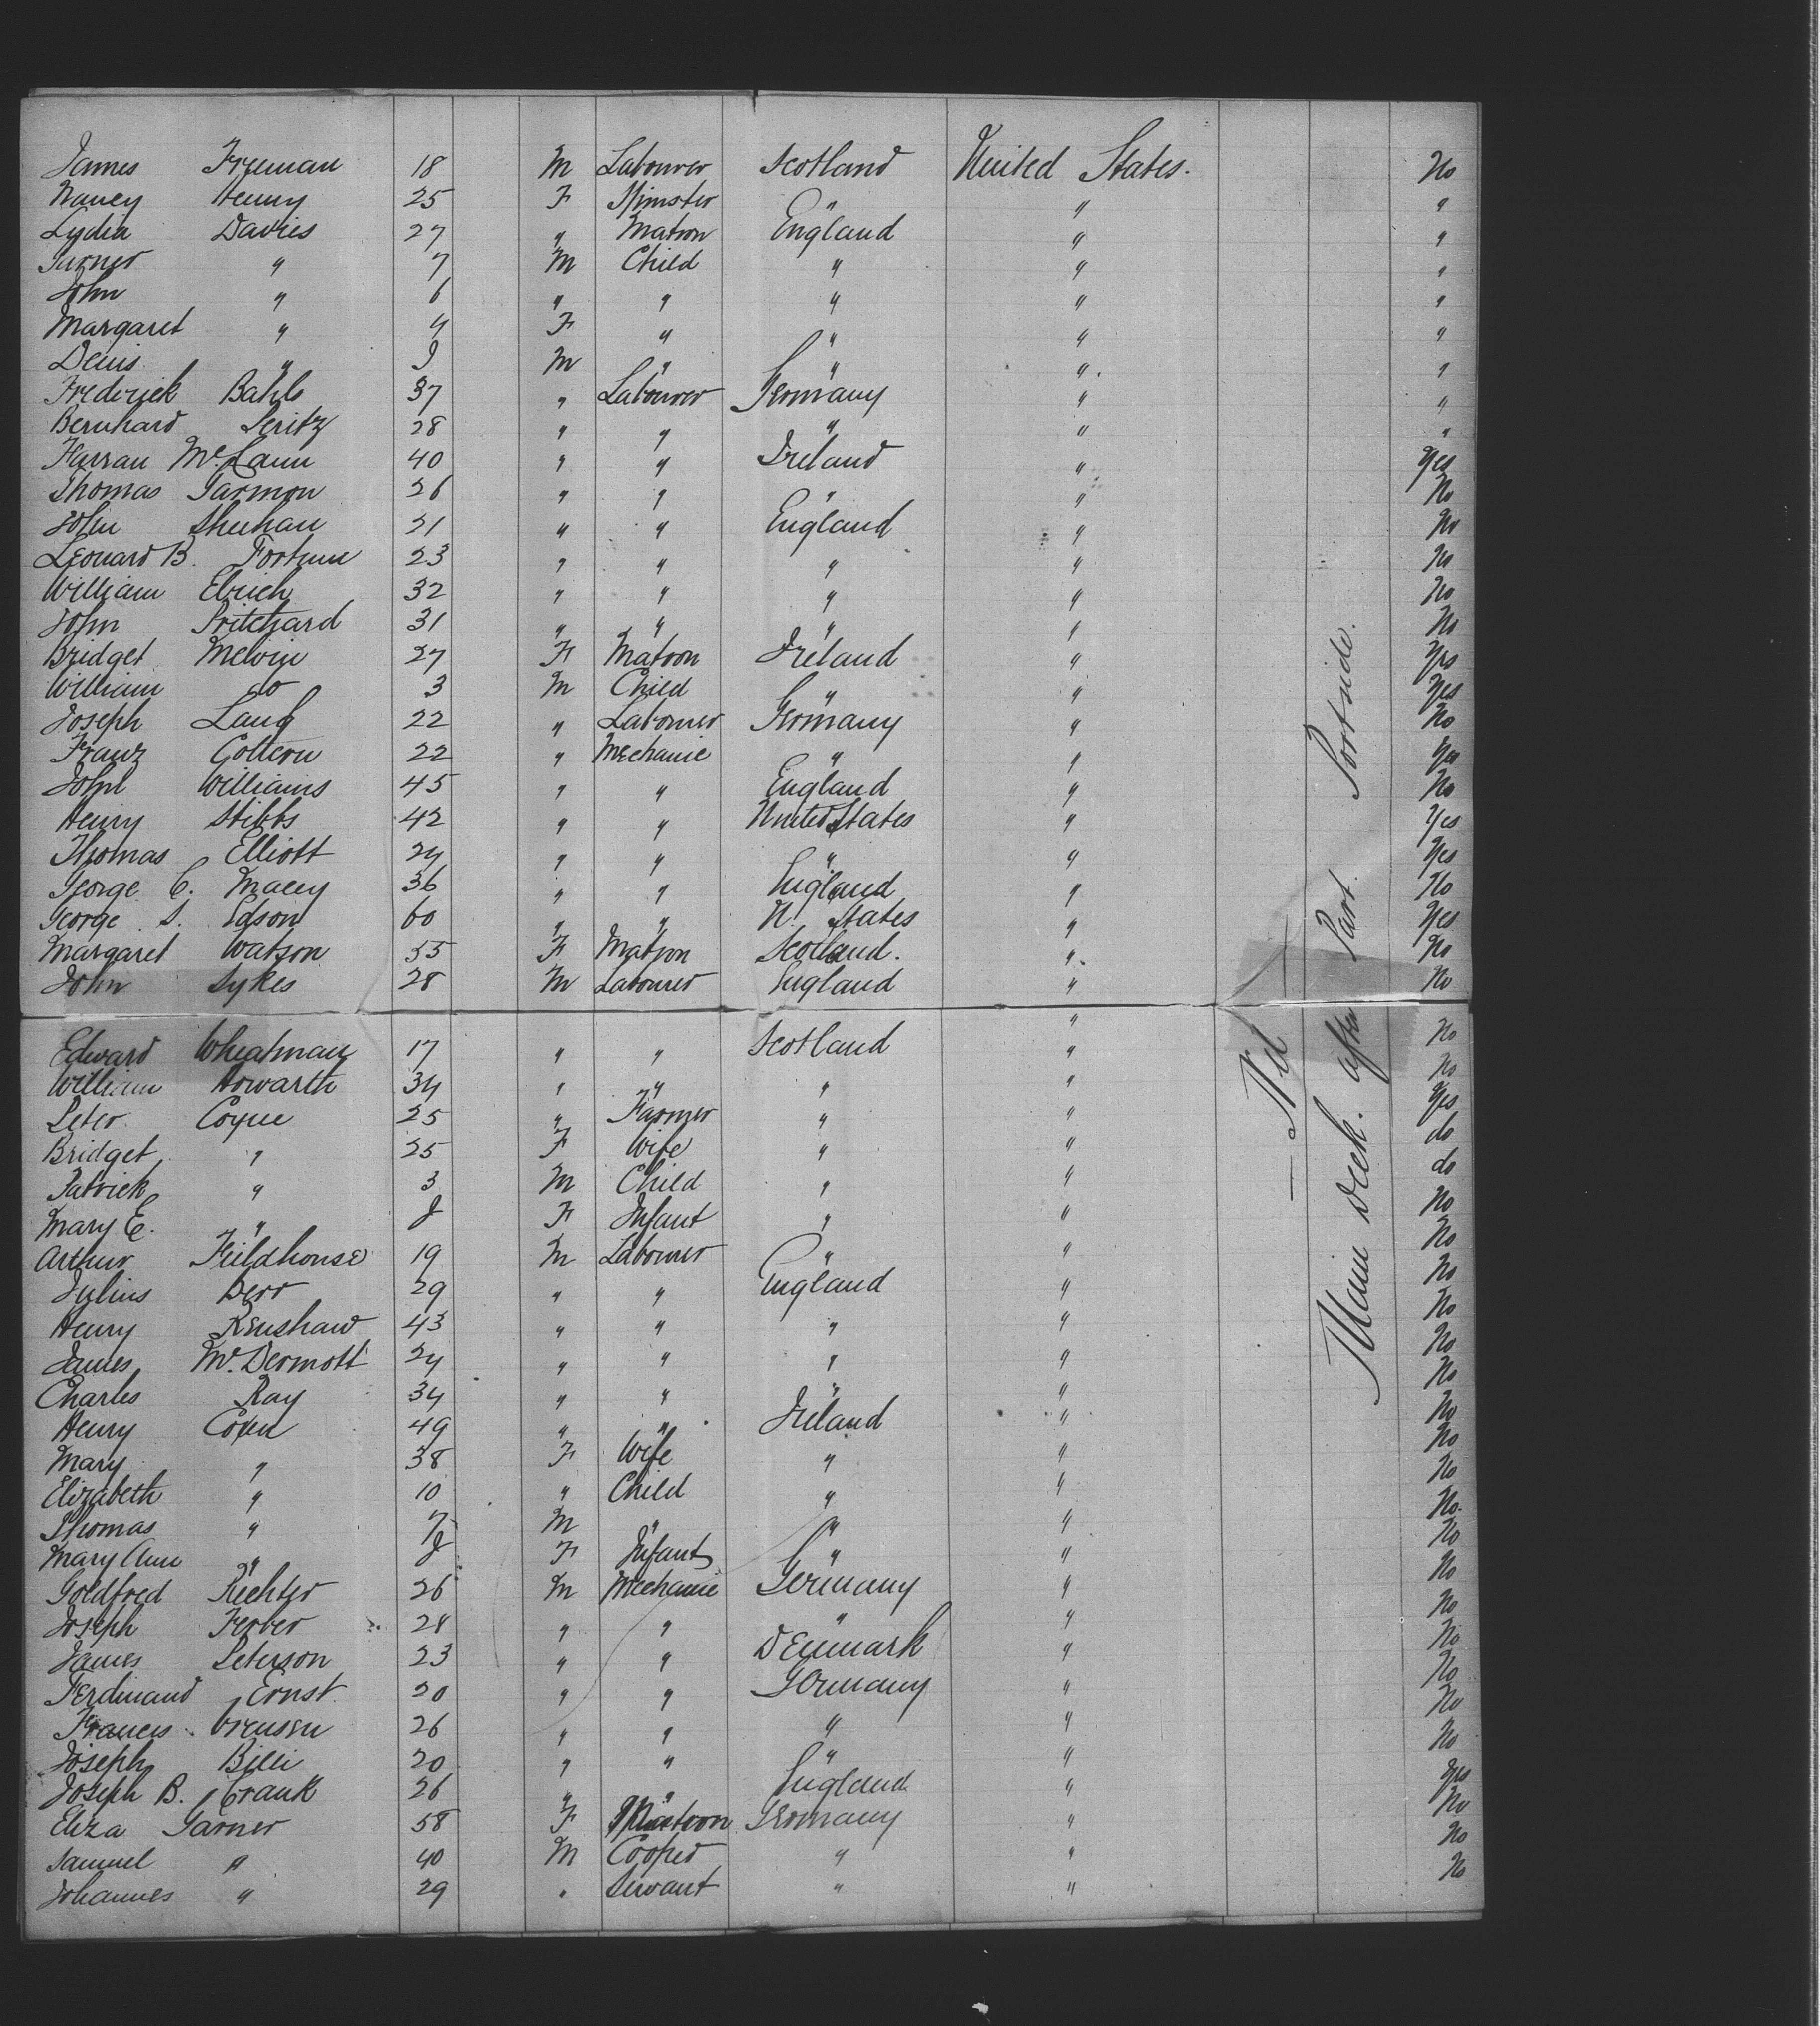 James Freeman 18 M Labourer Scotland United States. No
Nancy Henry 25 F Spinster " " "
Lydia Davies 27 " Matron England " "
Turner " 7 M Child " " "
John " 6 " " " " "
Margaret " 4 F " " " "
Denis " M " " " "
Frederick Bahls 37 " Labourer Germany " "
Bernhard Seritz 28 " " " " "
McCann 40 " " Ireland " Yes
Thomas Garmon 26 " " " " No
John Sheehan 21 " " England " No
Leonard B. Fortune 23 " " " " No
William Elrich 32 " " " " No
John Pritchard 31 " " " " No
Bridget Melvin 27 F Matron Ireland " Yes
William do 3 M Child " " Yes
Joseph Lang 22 " Labourer Germany " No
Franz Cottern 22 " Mechanic " " Yes
John Williams 45 " " England " No
Henry Stibbs 42 " " United States " Yes
Thomas Elliott 24 " " " " Yes
George C. Macey 36 " " England " No
George S. Edson 60 " " U. States " Yes
Margaret Watson 55 F Matron Scotland. " No
John Sykes 28 M Labourer England " No
Edward Wheatman 17 " " Scotland " No
William Howarth 34 " " " " No
Peter Coyne 25 " Farmer " " Yes
Bridget " 25 F Wife " " do
Patrick " 3 M Child " " do
Mary E. " F Infant " " No
Arthur Fieldhouse 19 M Labourer " " No
Julius Derr 29 " " England " No
Henry Renshaw 43 " " " " No
James McDermott 24 " " " " No
Charles Ray 34 " " " " No
Henry Coxen 49 " " Ireland " No
Mary " 38 F Wife " " No
Elizabeth " 10 " Child " " No
Thomas " 7 M " " " No.
Mary Ann " F Infant " " No
Goldfred Richter 26 M Mechanic Germany " No
Joseph Ferber 28 " " " " No
James Peterson 23 " " Denmark " No
Ferdinand Ernst 20 " " Germany " No
Francis 26 " " " " No
Joseph Billi 20 " " " " No
Joseph B. Crank 26 " " England " Yes
Eliza Garner 58 F Matron Germany " No
Samuel " 40 M Cooper " " No
Johannes " 29 " Servant " " No
— Nil —
Main Deck. after Part Portside.